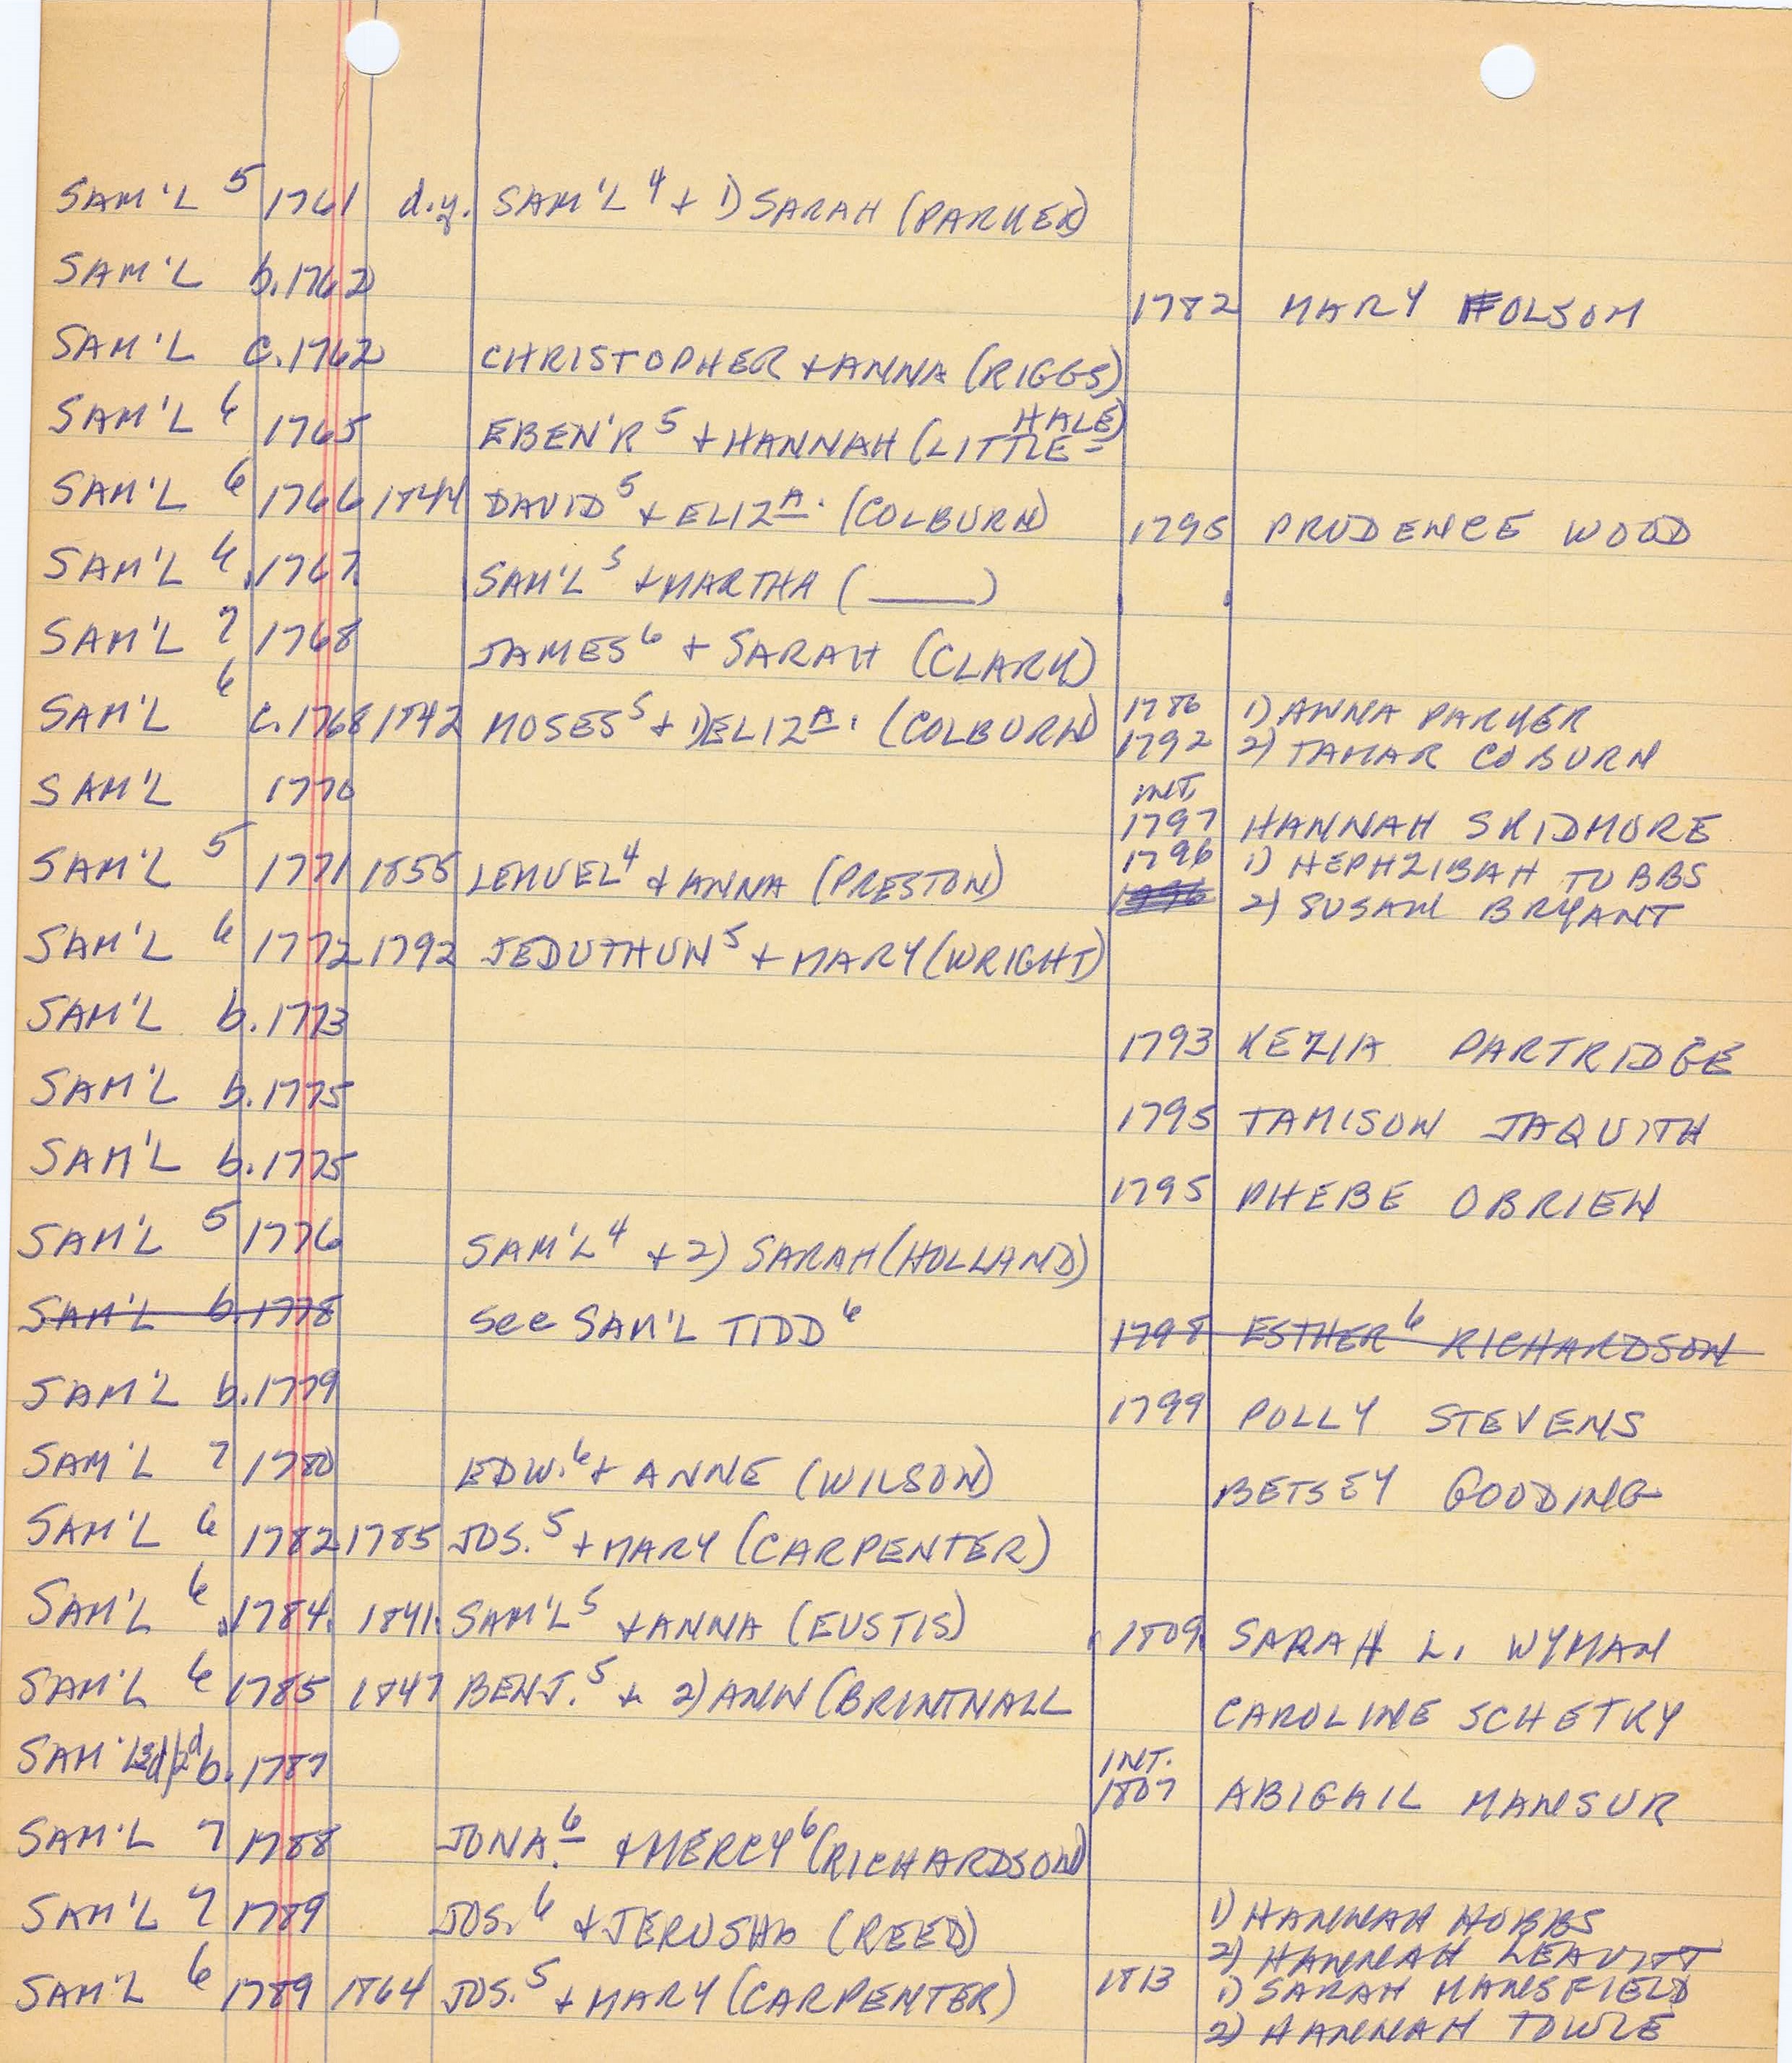 SAM'L 5 1761 d.y. SAM'L 4 + 1) SARAH (PARKER)
SAM'L b.1762 1782 MARY FOLSOM
SAM'L c.1762 CHRISTOPHER + ANNA (RIGGS)
SAM'L 6 1765 EBEN'R 5 + HANNAH (LITTLE-
HALE)
SAM'L 6 1766 1844 DAVID 5 + ELIZA. (COLBURN) 1795 PRUDENCE WOOD
SAM'L 6 1767 SAM'L 5 + MARTHA ( ____ )
SAM'L 7 1768 JAMES 6 + SARAH (CLARK)
SAM'L 6 c.1768 1842 MOSES 5 + 1) ELIZA. (COLBURN) 1786 1) ANNA PARKER
1792 2) TAMAR COBURN
SAM'L 1770 INT. 1797 HANNAH SKIDMORE
SAM'L 5 1771 1855 LEMUEL 4 + ANNA (PRESTON) 1796 1) HEPHZIBAH TUBBS
2) SUSAN BRYANT
SAM'L 6 1772 1792 JEDUTHUN 5 + MARY (WRIGHT)
SAM'L b.1773 1793 KEZIA PARTRIDGE
SAM'L b.1775 1795 TAMISON JAQUITH
SAM'L b.1775 1795 PHEBE OBRIEN
SAM'L 5 1776 SAM'L 4 + 2) SARAH (HOLLAND)
SAM'L b.1778 See SAM'L TIDD 6 1798 ESTHER 6 RICHARDSON
SAM'L b.1779 1799 POLLY STEVENS
SAM'L 7 1780 EDW. 6 + ANNE (WILSON) BETSEY GOODING
SAM'L 6 1782 1785 JOS. 5 + MARY (CARPENTER)
SAM'L 6 1784 1841 SAM'L 5 + ANNA (EUSTIS) 1809 SARAH L. WYMAN
SAM'L 6 1785 1847 BENJ. 5 + 2) ANN (BRINTNALL CAROLINE SCHETKY
SAM'L b.1787 INT. 1807 ABIGAIL MANSUR
SAM'L 7 1788 JONA. 6 + MERCY 6 (RICHARDSON)
SAM'L 7 1789 JOS. 6 + JERUSHA (REED) 1) HANNAH HOBBS
2) HANNAH LEAVITT
SAM'L 6 1789 1864 JOS. 5 + MARY (CARPENTER) 1813 1) SARAH MANSFIELD
2) HANNAH TOWLE